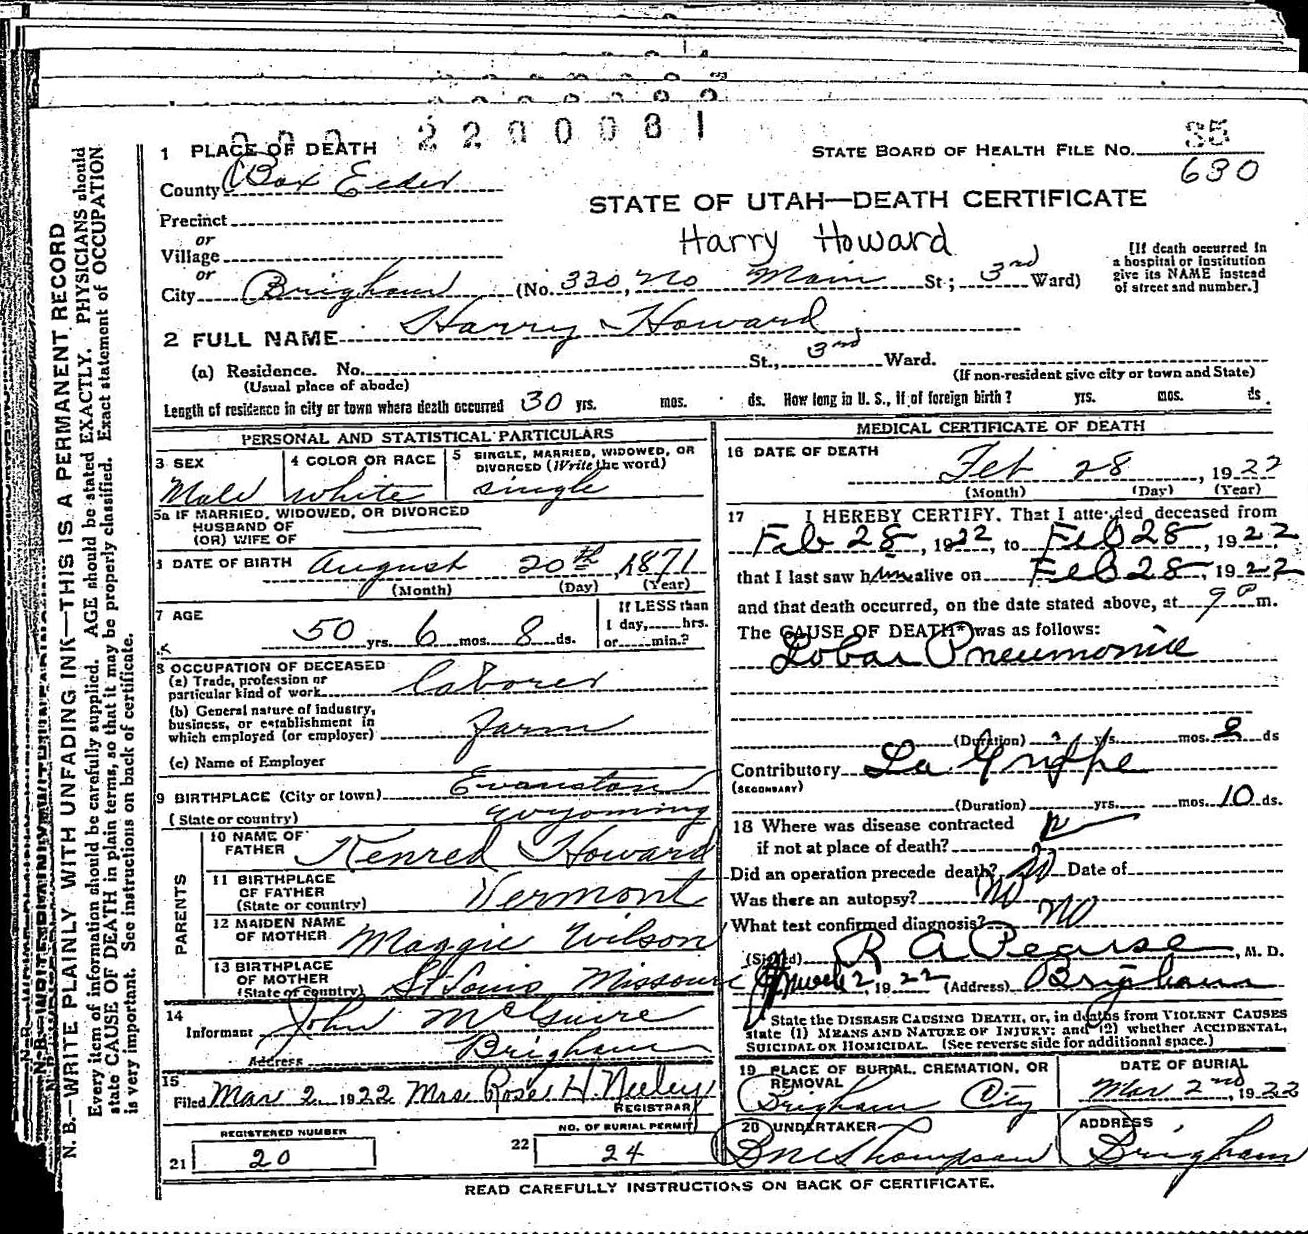 2200081
1 PLACE OF DEATH
STATE BOARD OF HEALTH FILE No. 35
630
County Box Elder
STATE OF UTAH—DEATH CERTIFICATE
Precinct
Harry Howard
or
Village
or
City Brigham (No. 330, No Main St; 3rd Ward)
[If death occurred in a hospital or institution give its NAME instead of street and number.]
2 FULL NAME Harry Howard
(a) Residence. No. St., 3rd Ward.
(Usual place of abode) (If non-resident give city or town and State)
Length of residence in city or town where death occurred 30 yrs. mos. ds. How long in U. S., if of foreign birth? yrs. mos. ds.
PERSONAL AND STATISTICAL PARTICULARS
3 SEX Male
4 COLOR OR RACE white
5 SINGLE, MARRIED, WIDOWED, OR DIVORCED (Write the word) single
5a IF MARRIED, WIDOWED, OR DIVORCED
HUSBAND OF
(OR) WIFE OF
DATE OF BIRTH August 20th, 1871
(Month) (Day) (Year)
7 AGE 50 yrs. 6 mos. 8 ds.
If LESS than
1 day, hrs.
or min.?
8 OCCUPATION OF DECEASED
(a) Trade, profession or
particular kind of work laborer
(b) General nature of industry,
business, or establishment in
which employed (or employer) farm
(c) Name of Employer
9 BIRTHPLACE (City or town) Evanston
(State or country) Wyoming
PARENTS
10 NAME OF
FATHER Kenred Howard
11 BIRTHPLACE
OF FATHER
(State or country) Vermont
12 MAIDEN NAME
OF MOTHER Maggie Wilson
13 BIRTHPLACE
OF MOTHER
(State or country) St Louis Missouri
14
Informant John McGuire
Address Brigham
15
Filed Mar 2 1922 Mrs Rose H. Neeley
REGISTRAR
REGISTERED NUMBER
21 20
NO. OF BURIAL PERMIT
22 24
MEDICAL CERTIFICATE OF DEATH
16 DATE OF DEATH
Feb 28, 1922
(Month) (Day) (Year)
17 I HEREBY CERTIFY, That I attended deceased from
Feb 28, 1922, to Feb 28, 1922
that I last saw him alive on Feb 28, 1922
and that death occurred, on the date stated above, at 9 P m.
The CAUSE OF DEATH* was as follows:
Lobar Pneumonia
(Duration) yrs. mos. ds
Contributory La Grippe
(SECONDARY)
(Duration) yrs. mos. 10 ds.
18 Where was disease contracted
if not at place of death?
Did an operation precede death? No Date of
Was there an autopsy? No
What test confirmed diagnosis? No
(Signed) R A Pearse, M. D.
March 2, 1922 (Address) Brigham
State the DISEASE CAUSING DEATH, or, in deaths from VIOLENT CAUSES
state (1) MEANS AND NATURE OF INJURY; and (2) whether ACCIDENTAL,
SUICIDAL OR HOMICIDAL. (See reverse side for additional space.)
19 PLACE OF BURIAL, CREMATION, OR
REMOVAL
Brigham City
DATE OF BURIAL
Mar 2nd, 1922
20 UNDERTAKER
ADDRESS
Brigham
READ CAREFULLY INSTRUCTIONS ON BACK OF CERTIFICATE.
N. B.—WRITE PLAINLY WITH UNFADING INK—THIS IS A PERMANENT RECORD
Every item of information should be carefully supplied. AGE should be stated EXACTLY. PHYSICIANS should
state CAUSE OF DEATH in plain terms, so that it may be properly classified. Exact statement of OCCUPATION
is very important. See instructions on back of certificate.